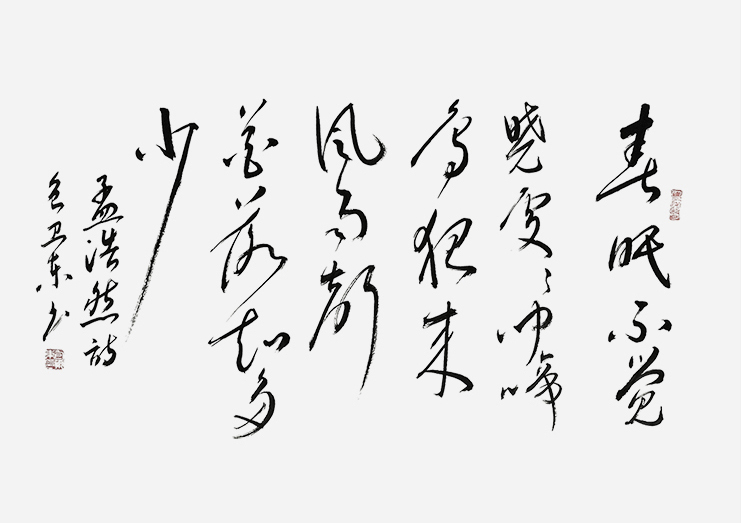 春眠不觉
晓处々闻啼
鸟夜来
风雨声
花落知多
少
孟浩然诗
卫东书